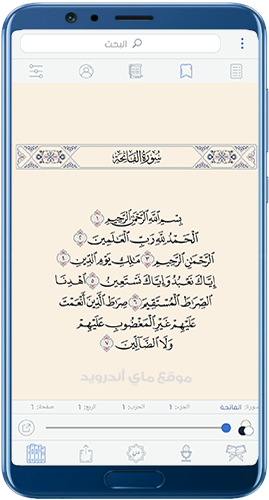 البحث
سُورَةُ الْفَاتِحَة
بِسْمِ اللَّهِ الرَّحْمَٰنِ الرَّحِيمِ ١
الْحَمْدُ لِلَّهِ رَبِّ الْعَالَمِينَ ٢
الرَّحْمَٰنِ الرَّحِيمِ ٣ مَالِكِ يَوْمِ الدِّينِ ٤
إِيَّاكَ نَعْبُدُ وَإِيَّاكَ نَسْتَعِينُ ٥ اهْدِنَا
الصِّرَاطَ الْمُسْتَقِيمَ ٦ صِرَاطَ الَّذِينَ أَنْعَمْتَ
عَلَيْهِمْ غَيْرِ الْمَغْضُوبِ عَلَيْهِمْ
وَلَا الضَّالِّينَ ٧
موقع ماي أندرويد
سورة: الفاتحة الجزء: 1 الحزب: 1 الربع: 1 صفحة: 1